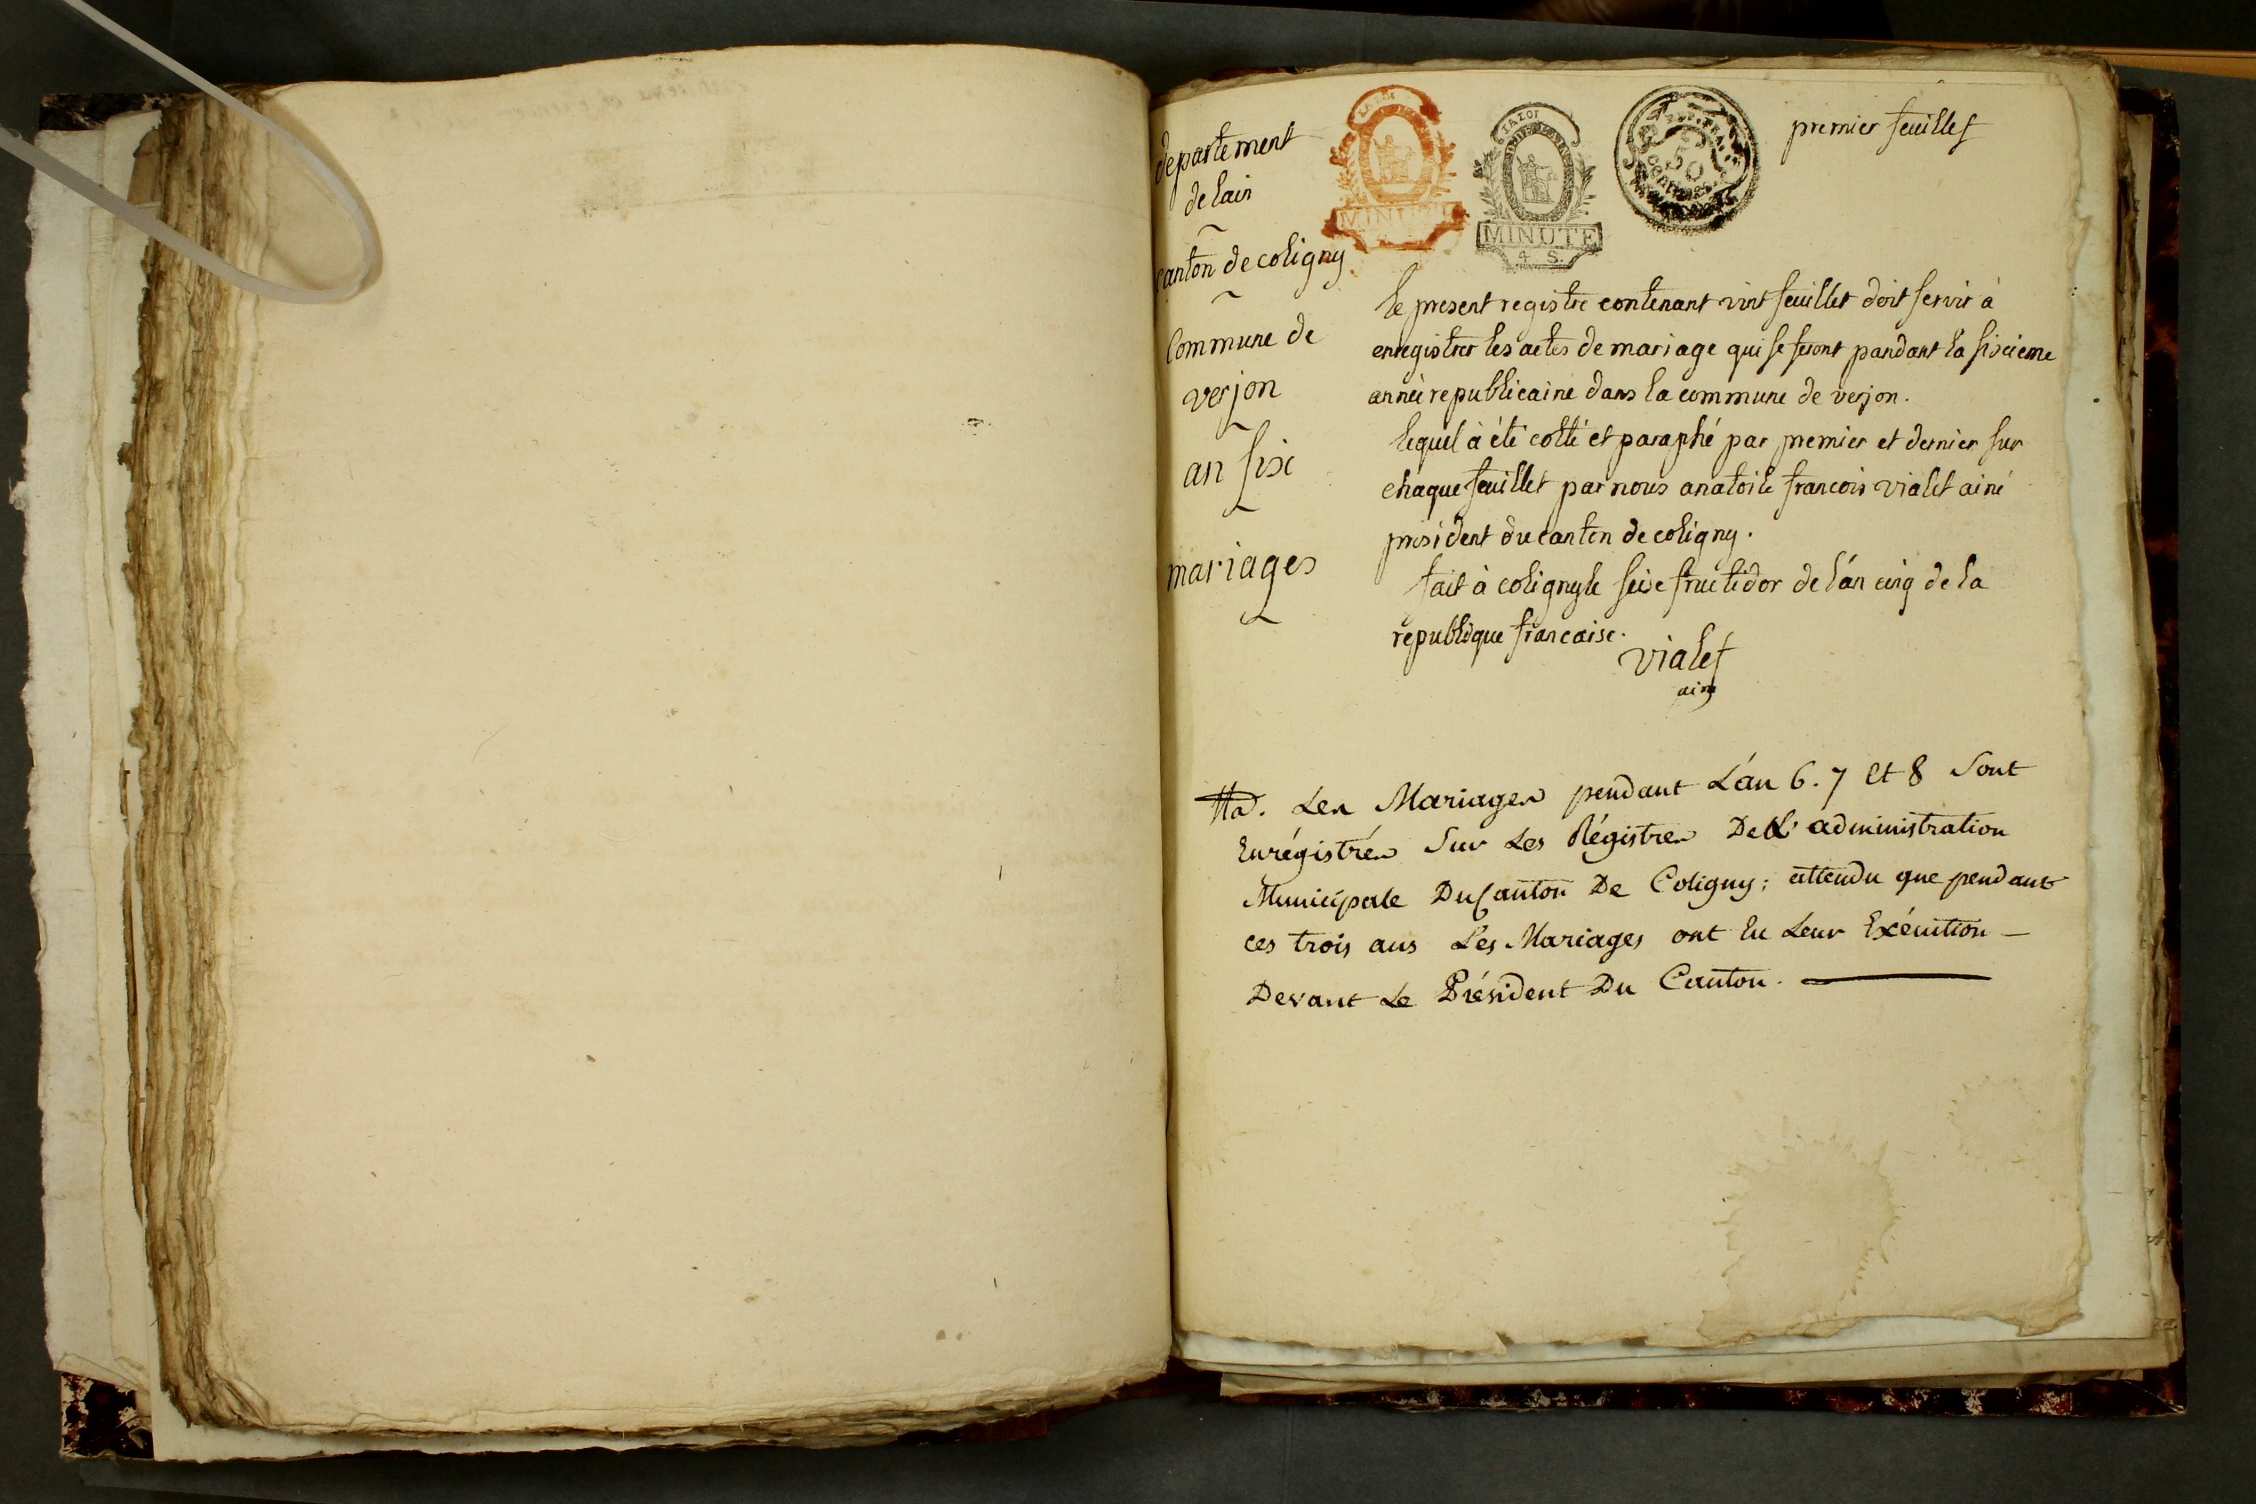 departement
de lain
canton de coligny
Commune de
verjon
an sixe
mariages
MINUTE
MINUTE
4 S.
50
centimes
premier feuillet
le present registre contenant vint feuillet doit servir à
enregistrer les actes de mariage qui se feront pandant la sixcieme
année republicaine dans la commune de verjon.
lequel à été cotté et paraphé par premier et dernier sur
chaque feuillet par nous anatoile francois vialet ainé
president du canton de coligny.
fait à coligny le seize fructidor de l'án cinq de la
republique francaise.
vialet
ainé
Na. Les Mariages pendant L'áu 6. 7 Et 8 Sont
Enrégistrés Sur Les Régistres De L'administration
Municipale Du Canton De Coligny; attendu que pendant
ces trois ans Les Mariages ont Eu Leur Exécution
Devant Le Président Du Canton.